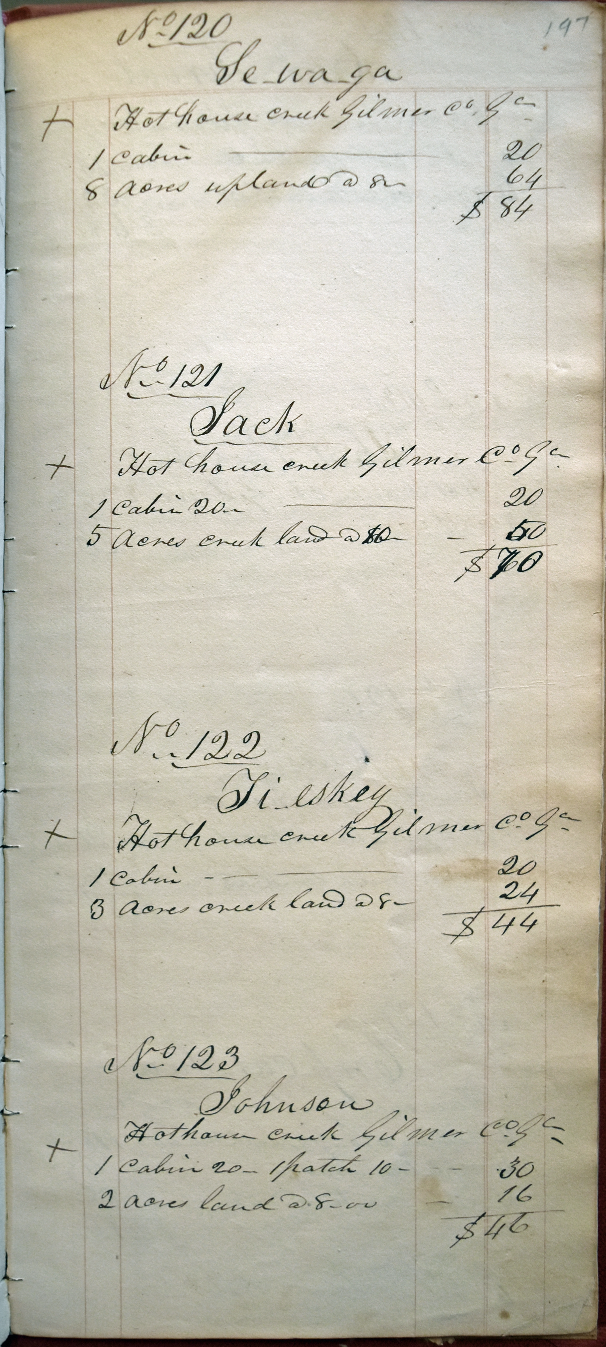 197
No 120
Se-wa-ga
+ Hot house creek Gilmer Co. Ga
1 cabin 20
8 acres upland @ 8- 64
$ 84
No 121
Jack
+ Hot house creek Gilmer Co Ga
1 cabin 20- 20
5 acres creek land @ 10- - 50
$ 70
No 122
Ti-eskey
+ Hot house creek Gilmer Co Ga
1 cabin - 20
3 acres creek land @ 8- 24
$ 44
No 123
Johnson
Hothouse creek Gilmer Co Ga
+
1 cabin 20- 1 patch 10- - - 30
2 acres land @ 8-00 - 16
$ 46